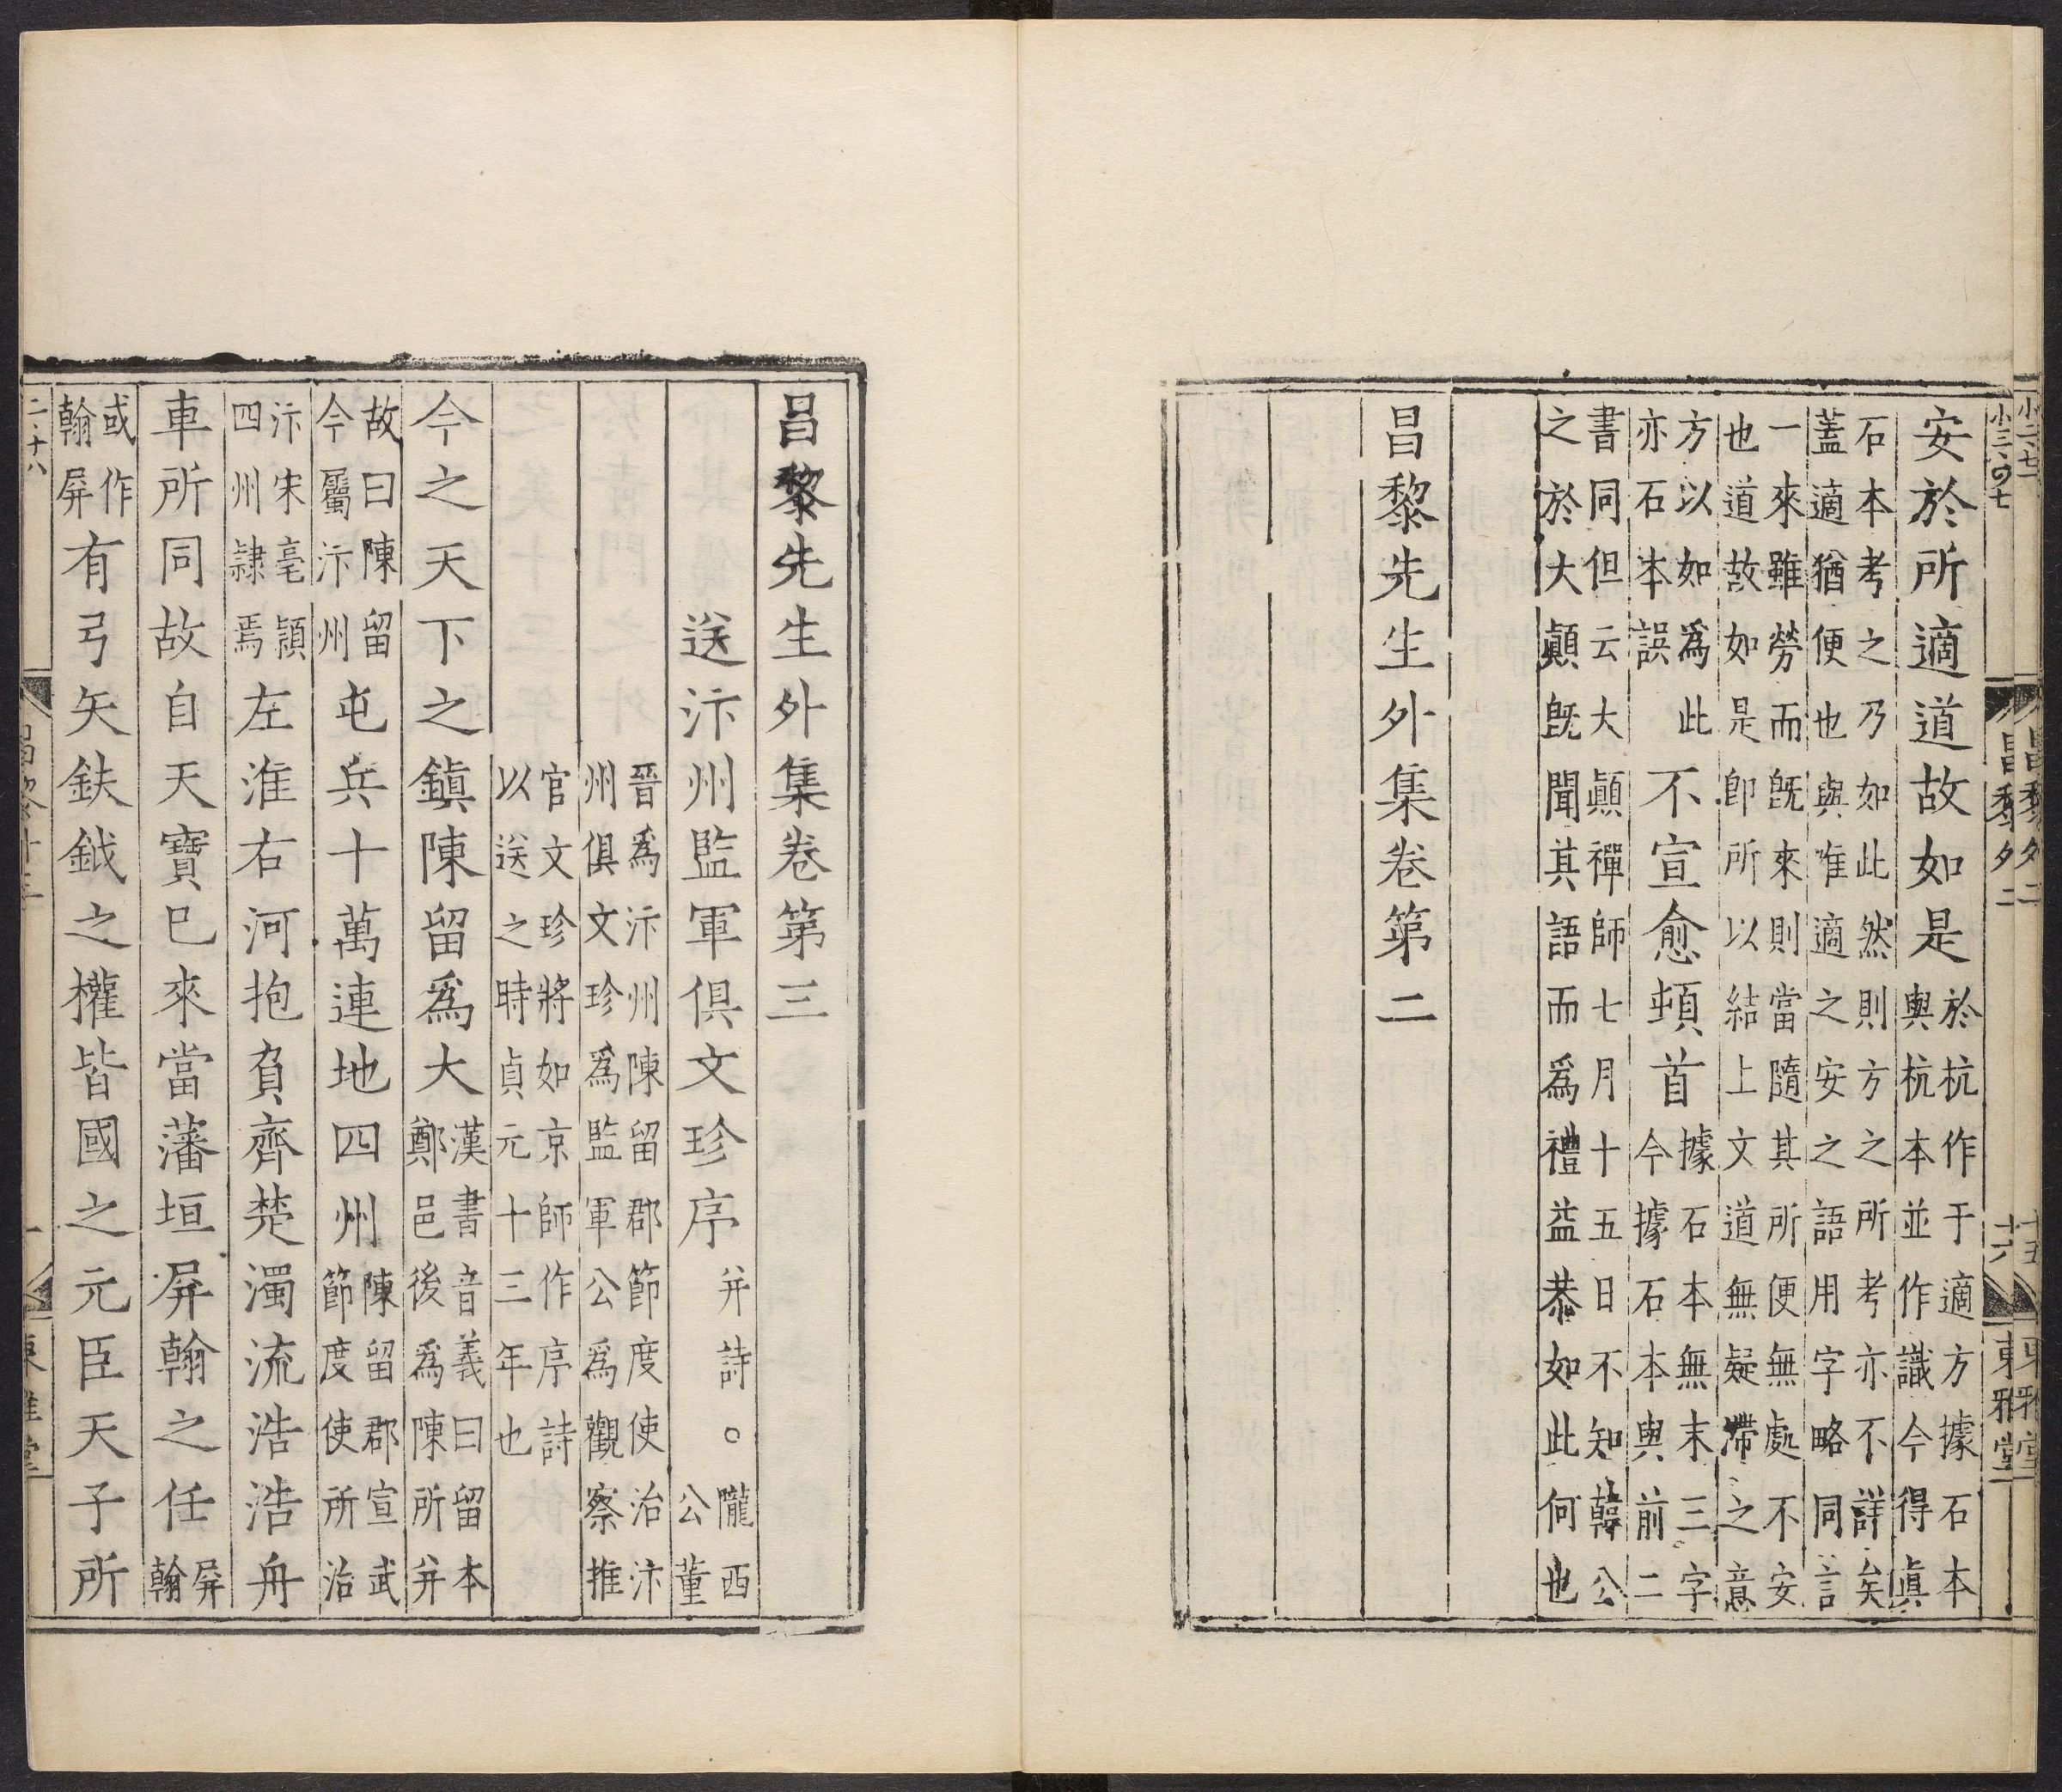 小二、七
昌黎外二 十五 東雅堂
小三、四七
昌黎外二 十六 東雅堂
安於所適道故如是
於杭作于適方據石本
與杭本並作識今得眞
石本考之乃如此然則方之所考亦不詳矣
蓋適猶便也與唯適之安之語用字略同言
一來雖勞而旣來則當隨其所便無處不安
也道故如是卽所以結上文道無疑滯之意
方以如爲此
亦石本誤
不宣愈頓首
據石本無末三字
今據石本與前二
書同但云大顚禪師七月十五日不知韓公
之於大顚旣聞其語而爲禮益恭如此何也
昌黎先生外集卷第二
昌黎先生外集卷第三
送汴州監軍俱文珍序
并詩○隴西
公董
晉爲汴州陳留郡節度使治汴
州俱文珍爲監軍公爲觀察推
官文珍將如京師作序詩
以送之時貞元十三年也
今之天下之鎭陳留爲大
漢書音義曰留本
鄭邑後爲陳所并
故曰陳留
今屬汴州
屯兵十萬連地四州
陳留郡宣武
節度使所治
汴宋亳潁
四州隷焉
左淮右河抱負齊楚濁流浩浩舟
車所同故自天寶巳來當藩垣屏翰之任
屏
翰
或作
翰屏
有弓矢鈇鉞之權皆國之元臣天子所
二、十八
一 東雅堂